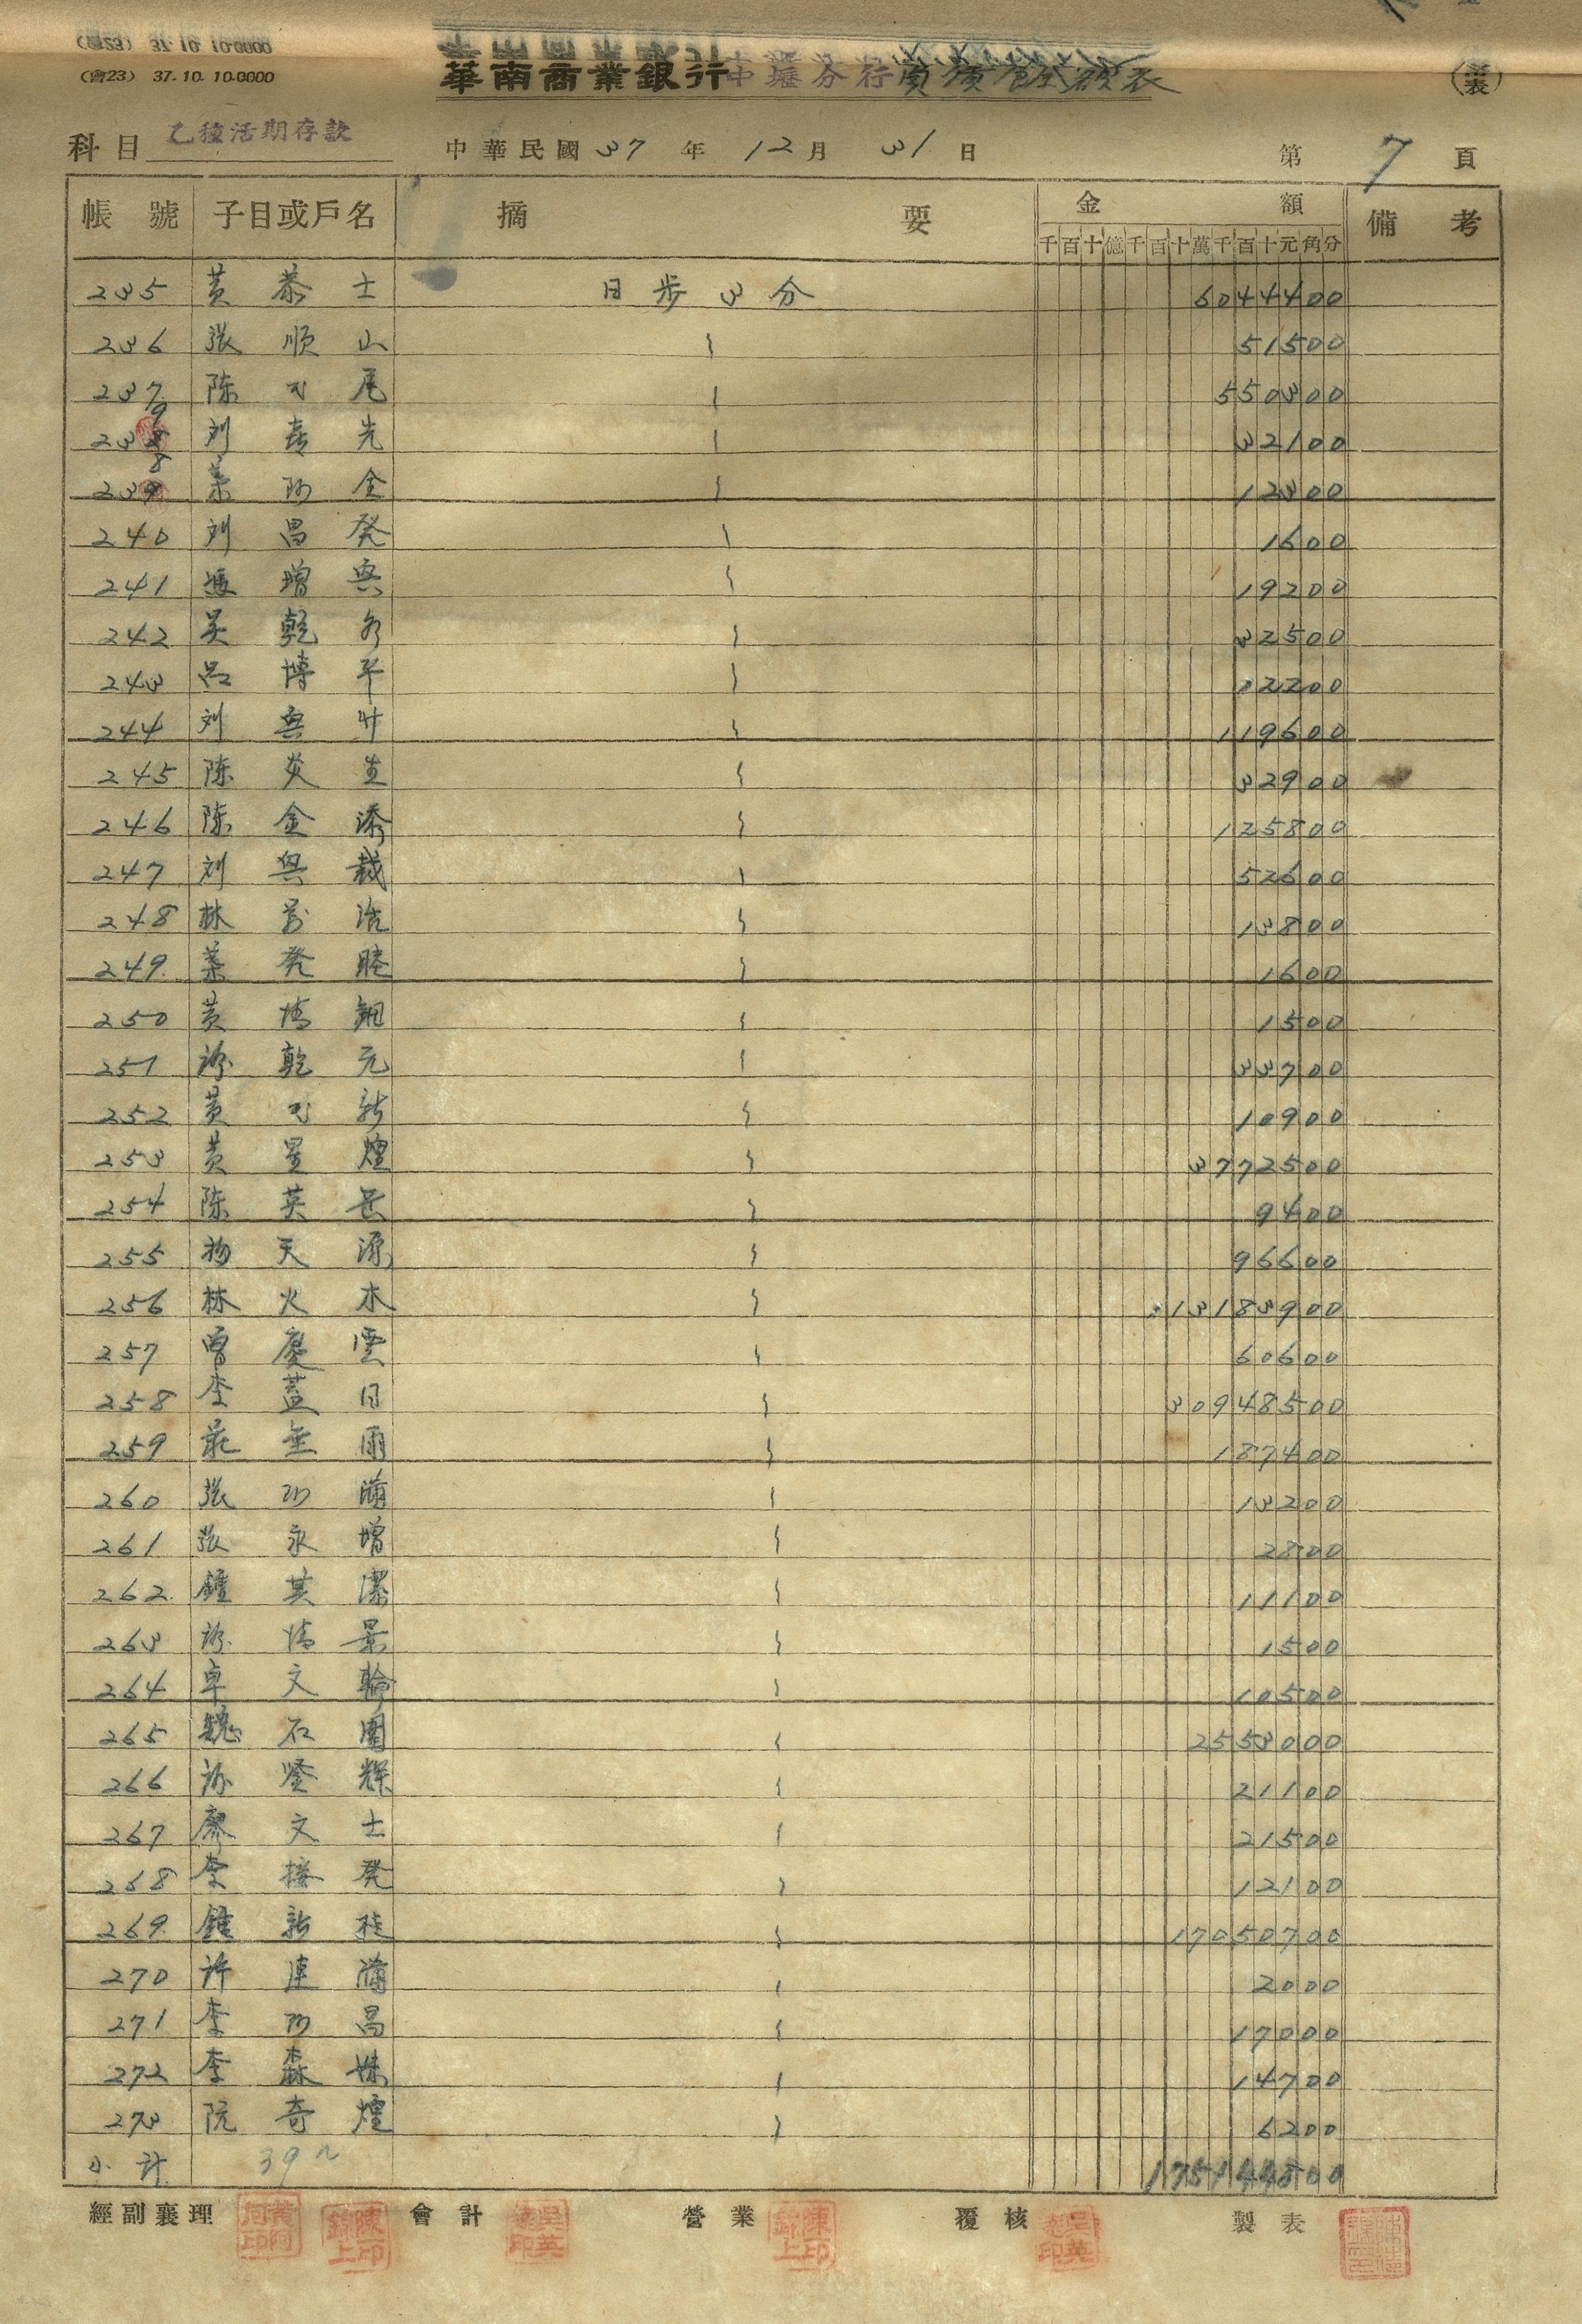 (會23) 37.10.10.0000
(會23) 37.10.10.0000
華南商業銀行中壢分行
科目 乙種活期存款 中華民國37年12月31日 第7頁
帳號 子目或戶名 摘要 金額 備考
千百十億千百十萬千百十元角分
235 黃恭士 日步3分 6044400
236 張順山 〻 51500
237 陳 尾 〻 550300
9
238 刘 先 〻 32100
8
239 葉阿全 〻 12300
240 刘昌發 〻 1600
241 增興 〻 19200
242 吳乾 〻 32500
243 呂博平 〻 12200
244 刘興 〻 119600
245 陳炎生 〻 32900
246 陳金添 〻 125800
247 刘興裁 〻 52600
248 林 〻 13800
249 葉發睦 〻 1600
250 黃 〻 1500
251 乾元 〻 33700
252 黃 新 〻 10900
253 黃星煌 〻 3772500
254 陳英 〻 9400
255 楊天源 〻 96600
256 林火木 〻 13183900
257 曾慶雲 〻 60600
258 李蓋日 〻 30948500
259 雨 〻 187400
260 張阿 〻 13200
261 張永增 〻 2800
262 鍾其潔 〻 11100
263 景 〻 1500
264 卓文輪 〻 10500
265 魏石圍 〻 2553000
266 輝 〻 21100
267 廖文士 〻 21500
268 李接發 〻 12100
269 鍾新桂 〻 17050700
270 許連 〻 2000
271 李阿昌 〻 17000
272 李森妹 〻 14700
273 阮奇煌 〻 6200
小計 39 175144800
經副襄理 會計 營業 覆核 製表